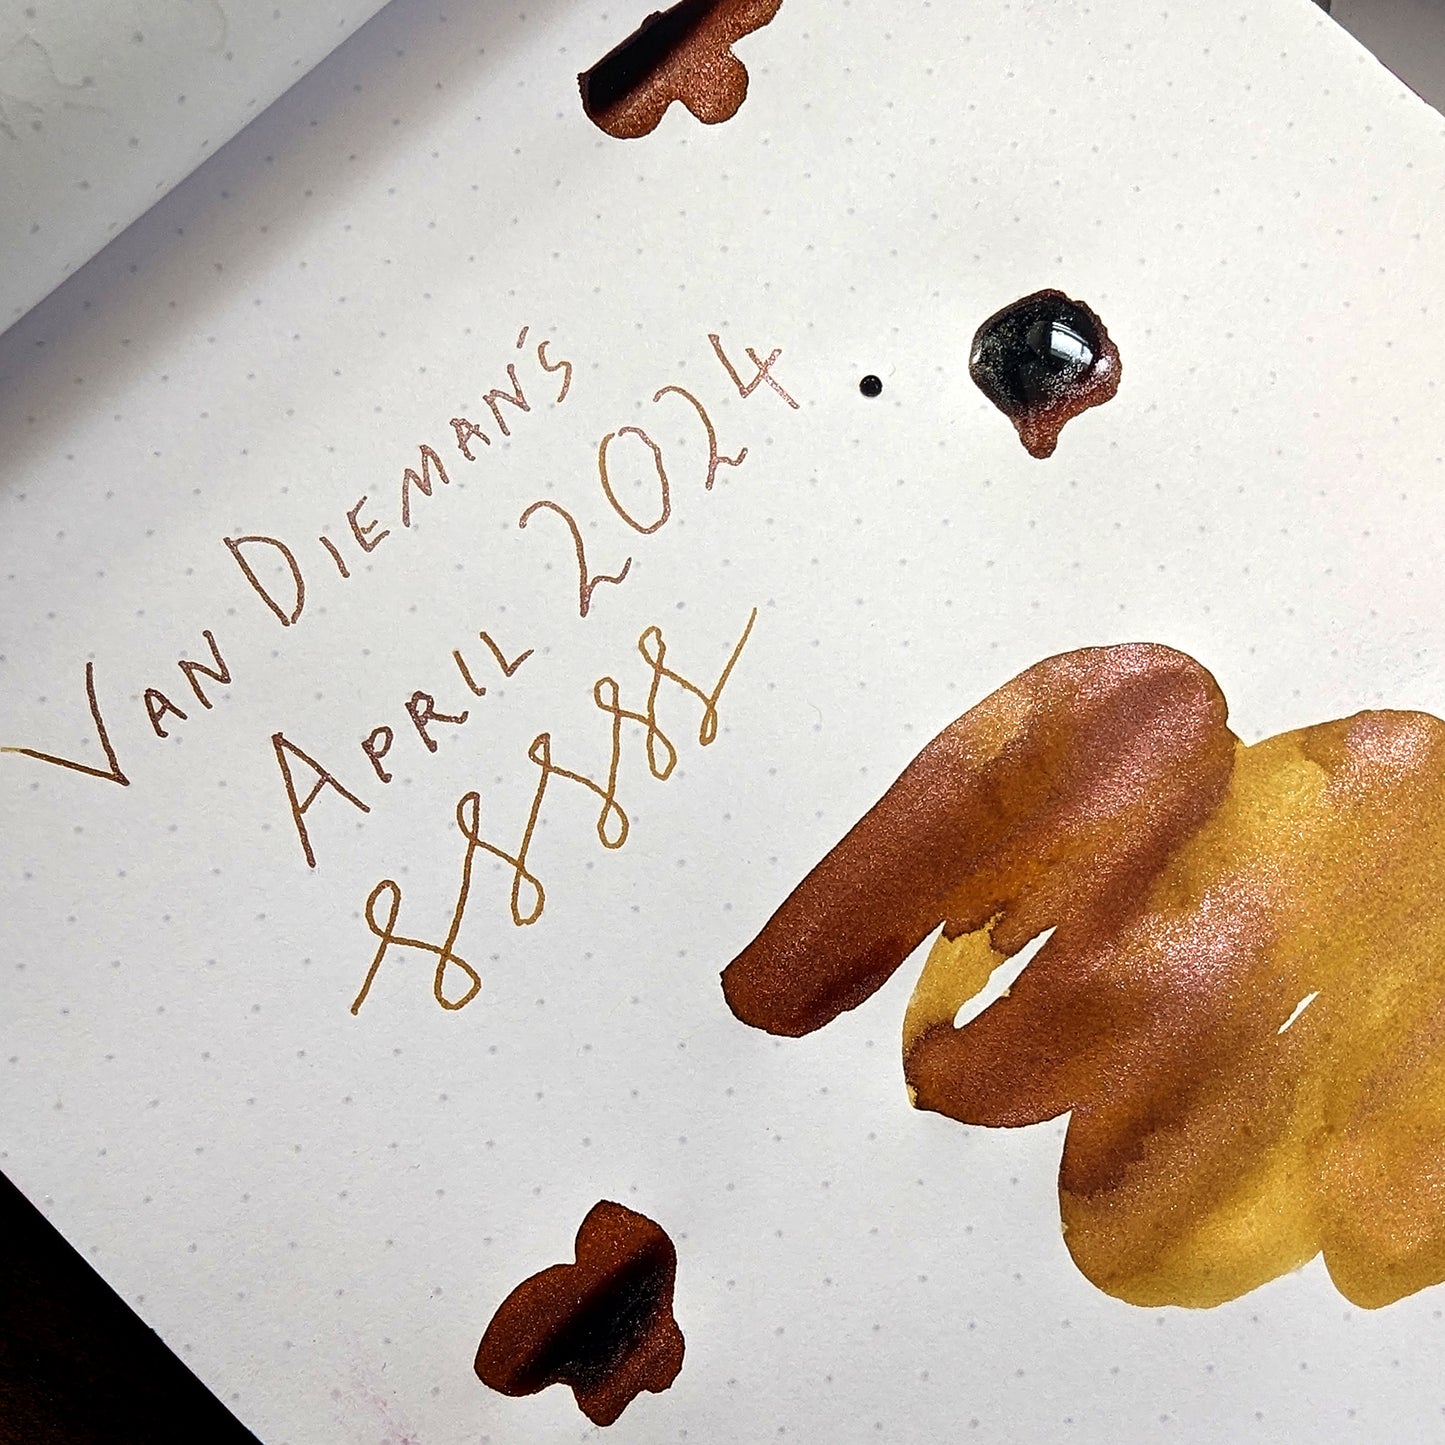 VAN DIEMAN'S
APRIL 2024
ssssss